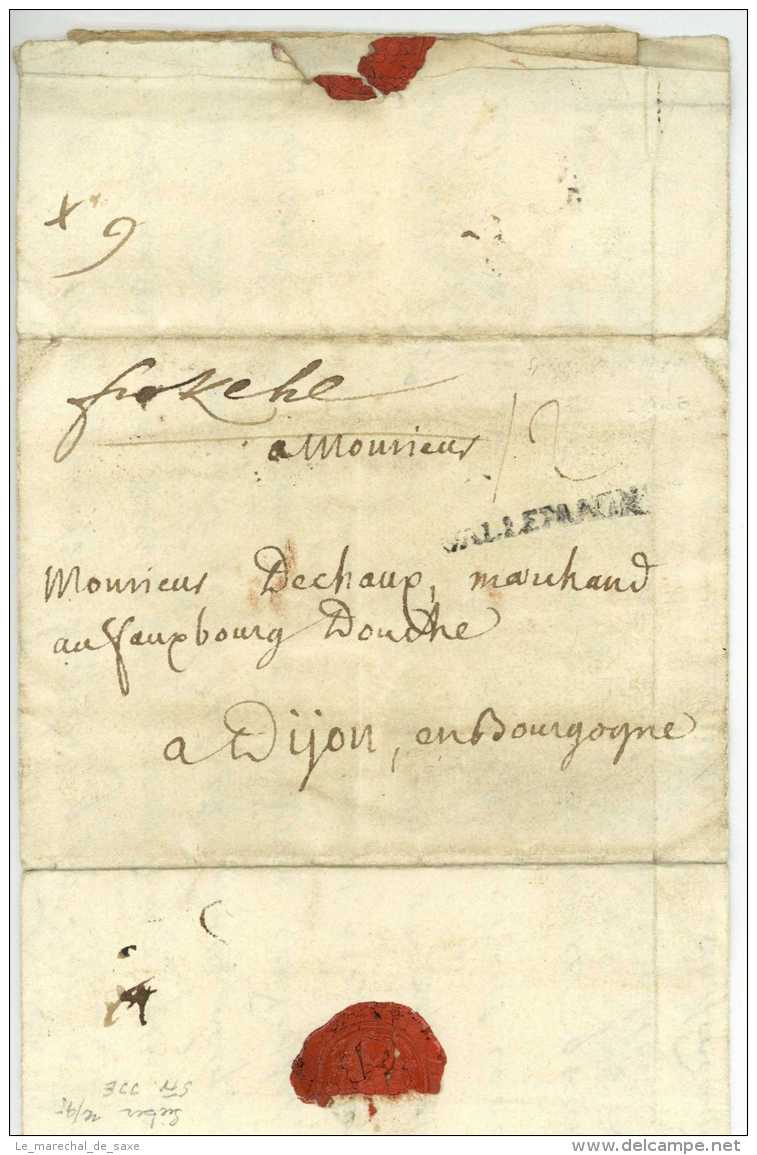 x 9
fro Kehl
a Monsieur
12
D'ALLEMAGN
Monsieur Dechaux, marchand
au fauxbourg Douche
a Dijon, en Bourgogne
Le_marechal_de_saxe
delcampe.net